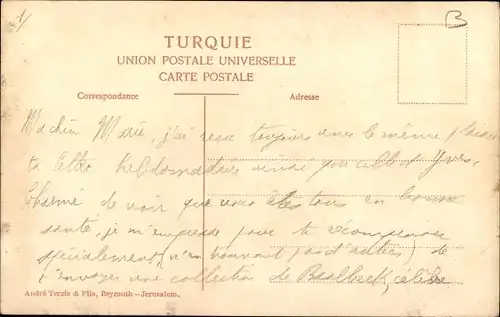 TURQUIE
UNION POSTALE UNIVERSELLE
CARTE POSTALE
Correspondance
Adresse
j'ai reçu toujours avec le même plaisir
ta lettre hebdomadaire ainsi que celle d'Yves.
Charmé de voir que vous êtes tous en bonne
santé, je m'empresse pour te récompenser
spécialement (n'en trouvant pas d'autres) de
t'envoyer une collection de Baalbeck, célèbre
André Terzis & Fils, Beyrouth—Jerusalem.